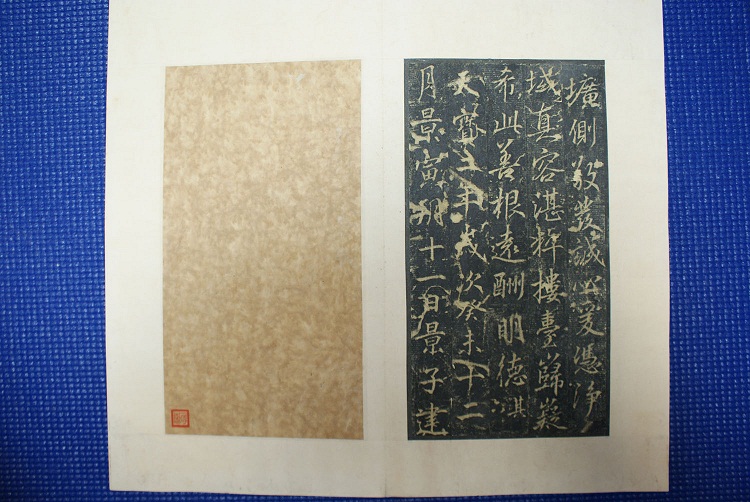 壙側敬發誠心爰憑淨
域真容湛粹摟臺歸嶷
希此善根遠酬明德淇
天寶二年歲次癸未十二
月景寅朔十一日景子建